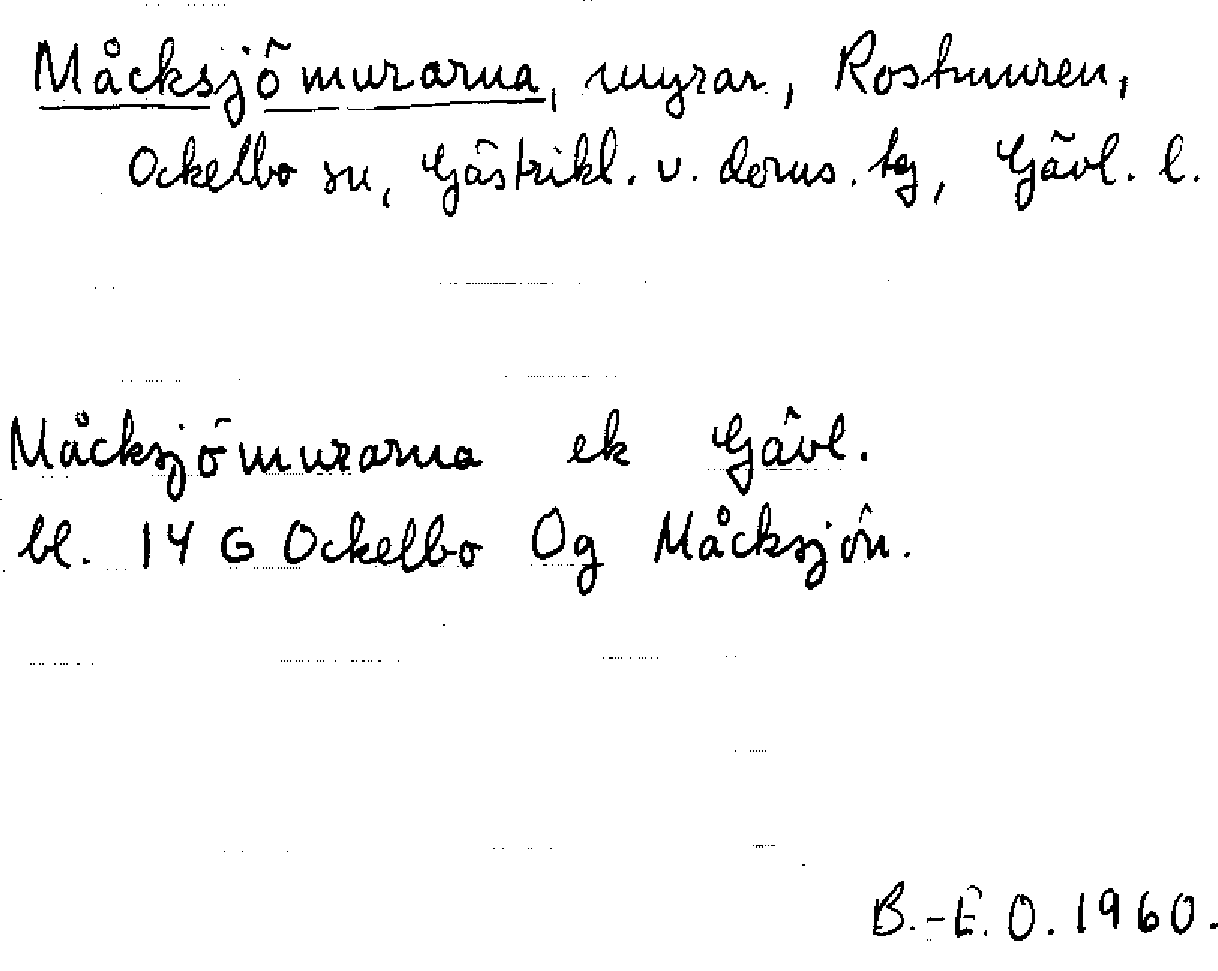 Måcksjömurarna, myrar, Rostmuren,
Ockelbo sn, Gästrikl. v. doms. tg, Gävl. l.
Måcksjömurarna ek Gävl.
bl. 14 G Ockelbo 0g Måcksjön.
B.-E. O. 1960.